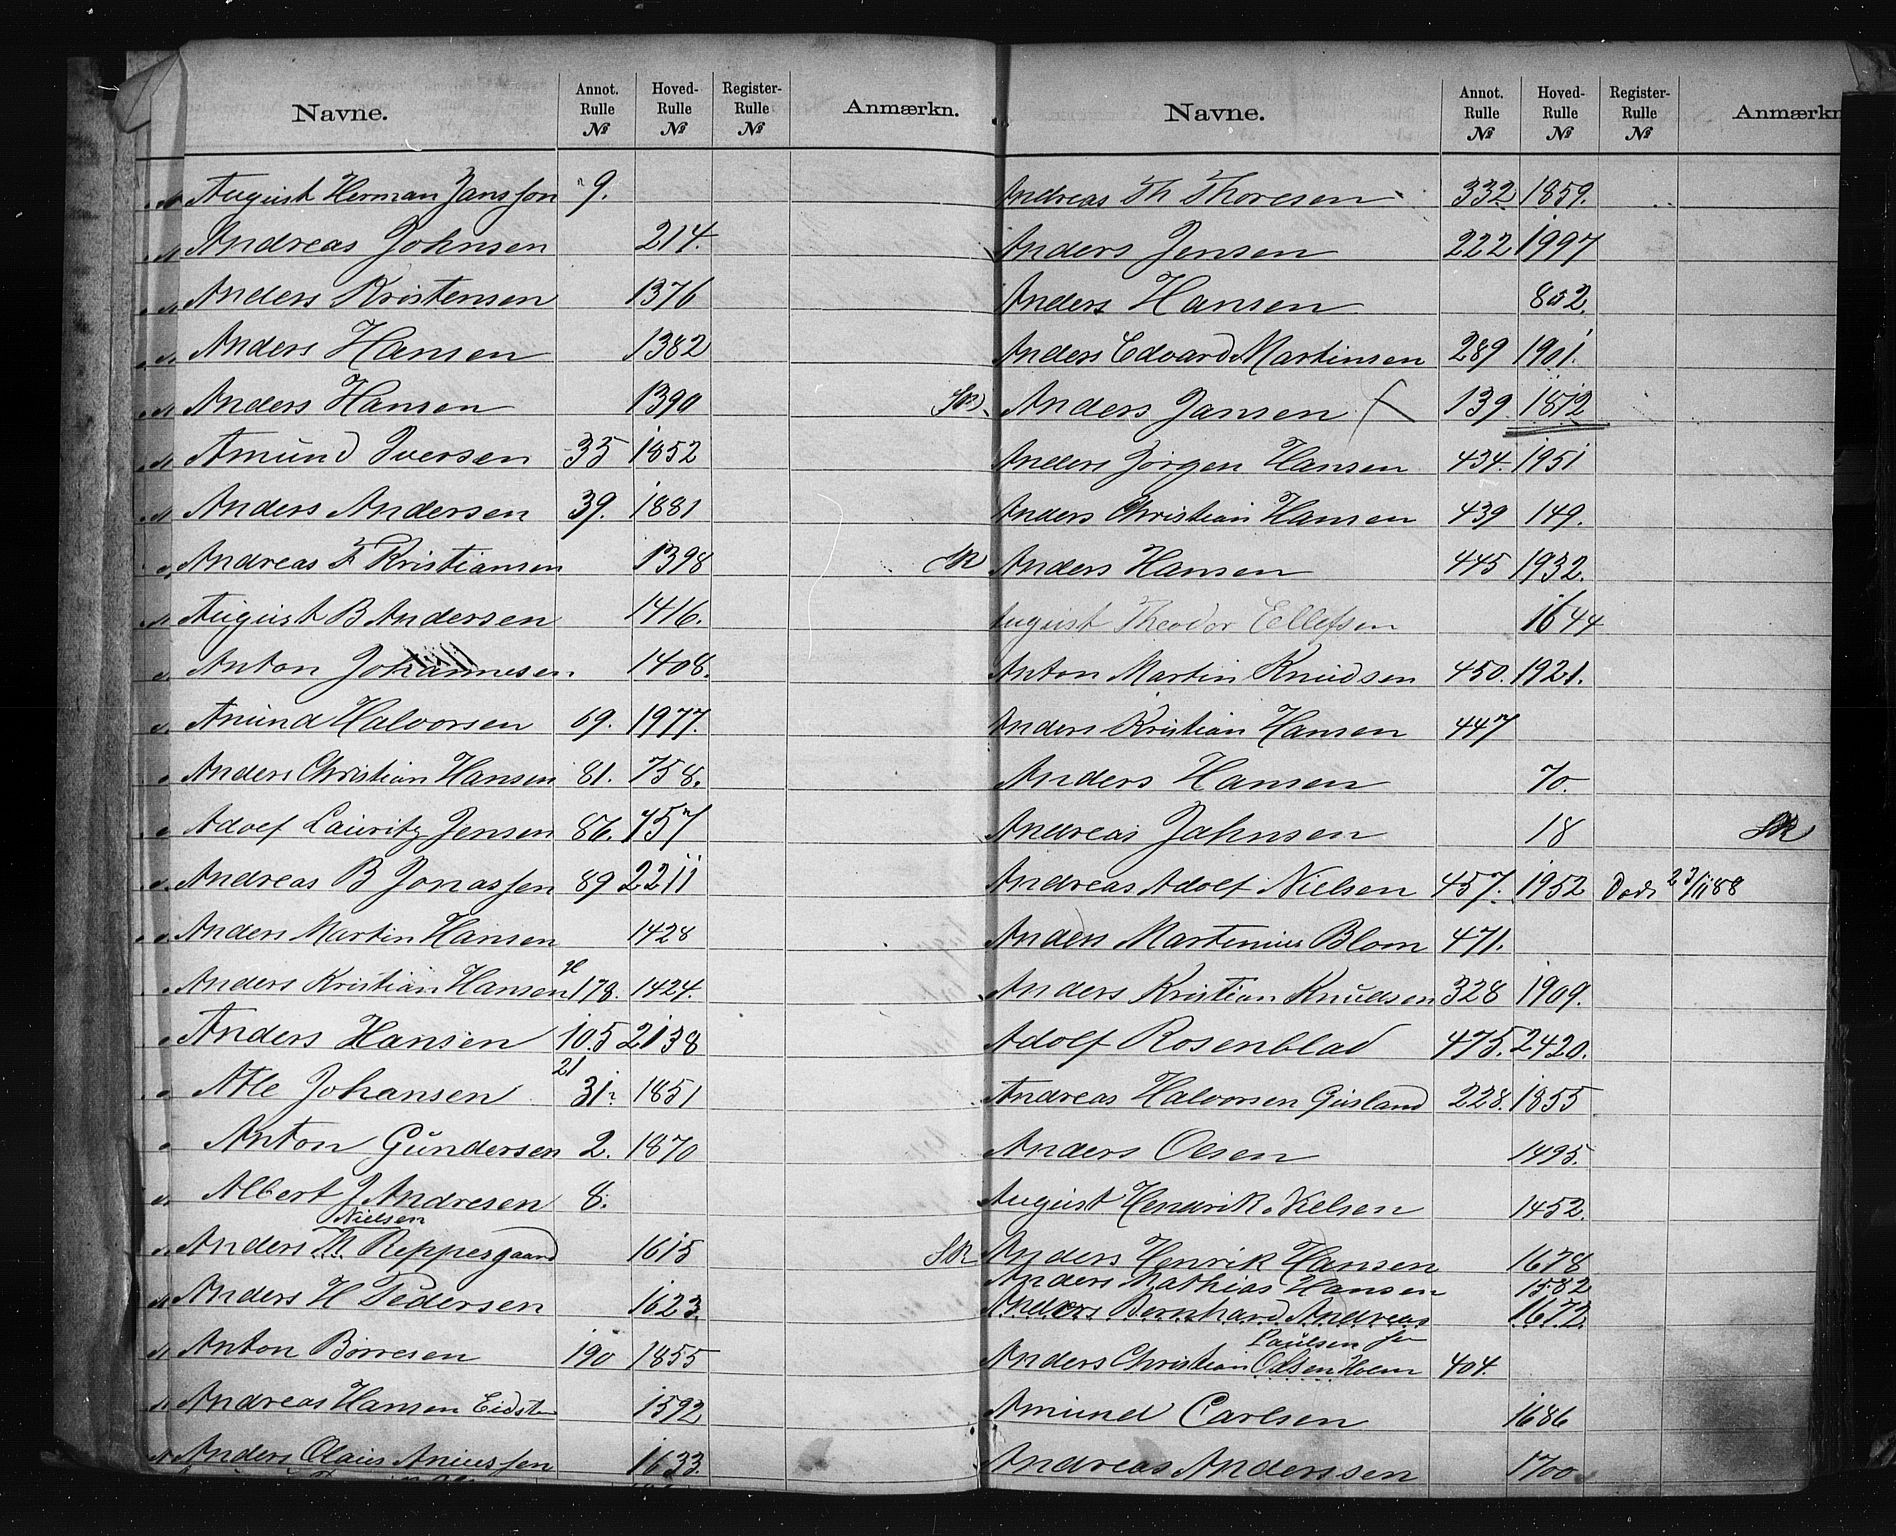 Navne. Annot. Rulle № Hoved- Rulle № Register- Rulle № Anmærkn.
August Herman Jansson 9.
Andreas Johnsen 214.
Anders Kristensen 1376
Anders Hansen 1382
Anders Hansen 1390
Amund Iversen 35 1852
Anders Andersen 39. 1881
Andreas F Kristiansen 1398
August B Andersen 1416.
Anton Johannesen 1408.
Anund Halvorsen 69. 1977.
Anders Christian Hansen 81. 758.
Adolf Lauritz Jensen 86. 757
Andreas B Jonassen 89 2211
Anders Martin Hansen 1428
Anders Kristian Hansen 178. 1424.
Anders Hansen 105 2138
21
Atle Johansen 31. 1851
Anton Gundersen 2. 1870
Albert J Andresen 8.
Nielsen
Anders M Reppesgaard 1615
Anders H Pedersen 1623.
Anton Börresen 190 1855
Andreas Hansen Eidsten 1592
Anders Olaus Aniussen 1633.
Navne. Annot. Rulle № Hoved- Rulle № Register- Rulle № Anmærkn
Andreas Th Thoresen 332 1859.
Anders Jensen 222 1997
Anders Hansen 852.
Anders Edvard Martinsen 289 1901.
SR Anders Jansen 139 1812
Anders Jörgen Hansen 434. 1951
Anders Christian Hansen 439 149.
SR Anders Hansen 445 1932.
August Theodor Ellefsen 1644
Anton Martin Knudsen 450. 1921.
Anders Kristian Hansen 447
Anders Hansen 70.
Andreas Jahnsen 18 SR
Andreas Adolf Nielsen 457. 1952 Död 23/11 88
Anders Martinius Blom 471.
Anders Kristian Knudsen 328 1909.
Adolf Rosenblad 475. 2420.
Andreas Halvorsen Gusland 228. 1855
Anders Olsen 1495.
August Hendrik Nielsen 1452.
SR Anders Henrik Hansen 1678
Anders Mathias Hansen 1582
Anders Bernhard Andreas 1672.
Paulsen
Anders Christian Olsen Holm 404.
Amund Carlsen 1686
Andreas Anderssen 1700